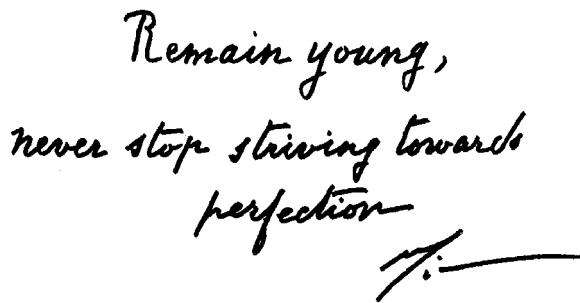 Remain young,
never stop striving towards
perfection